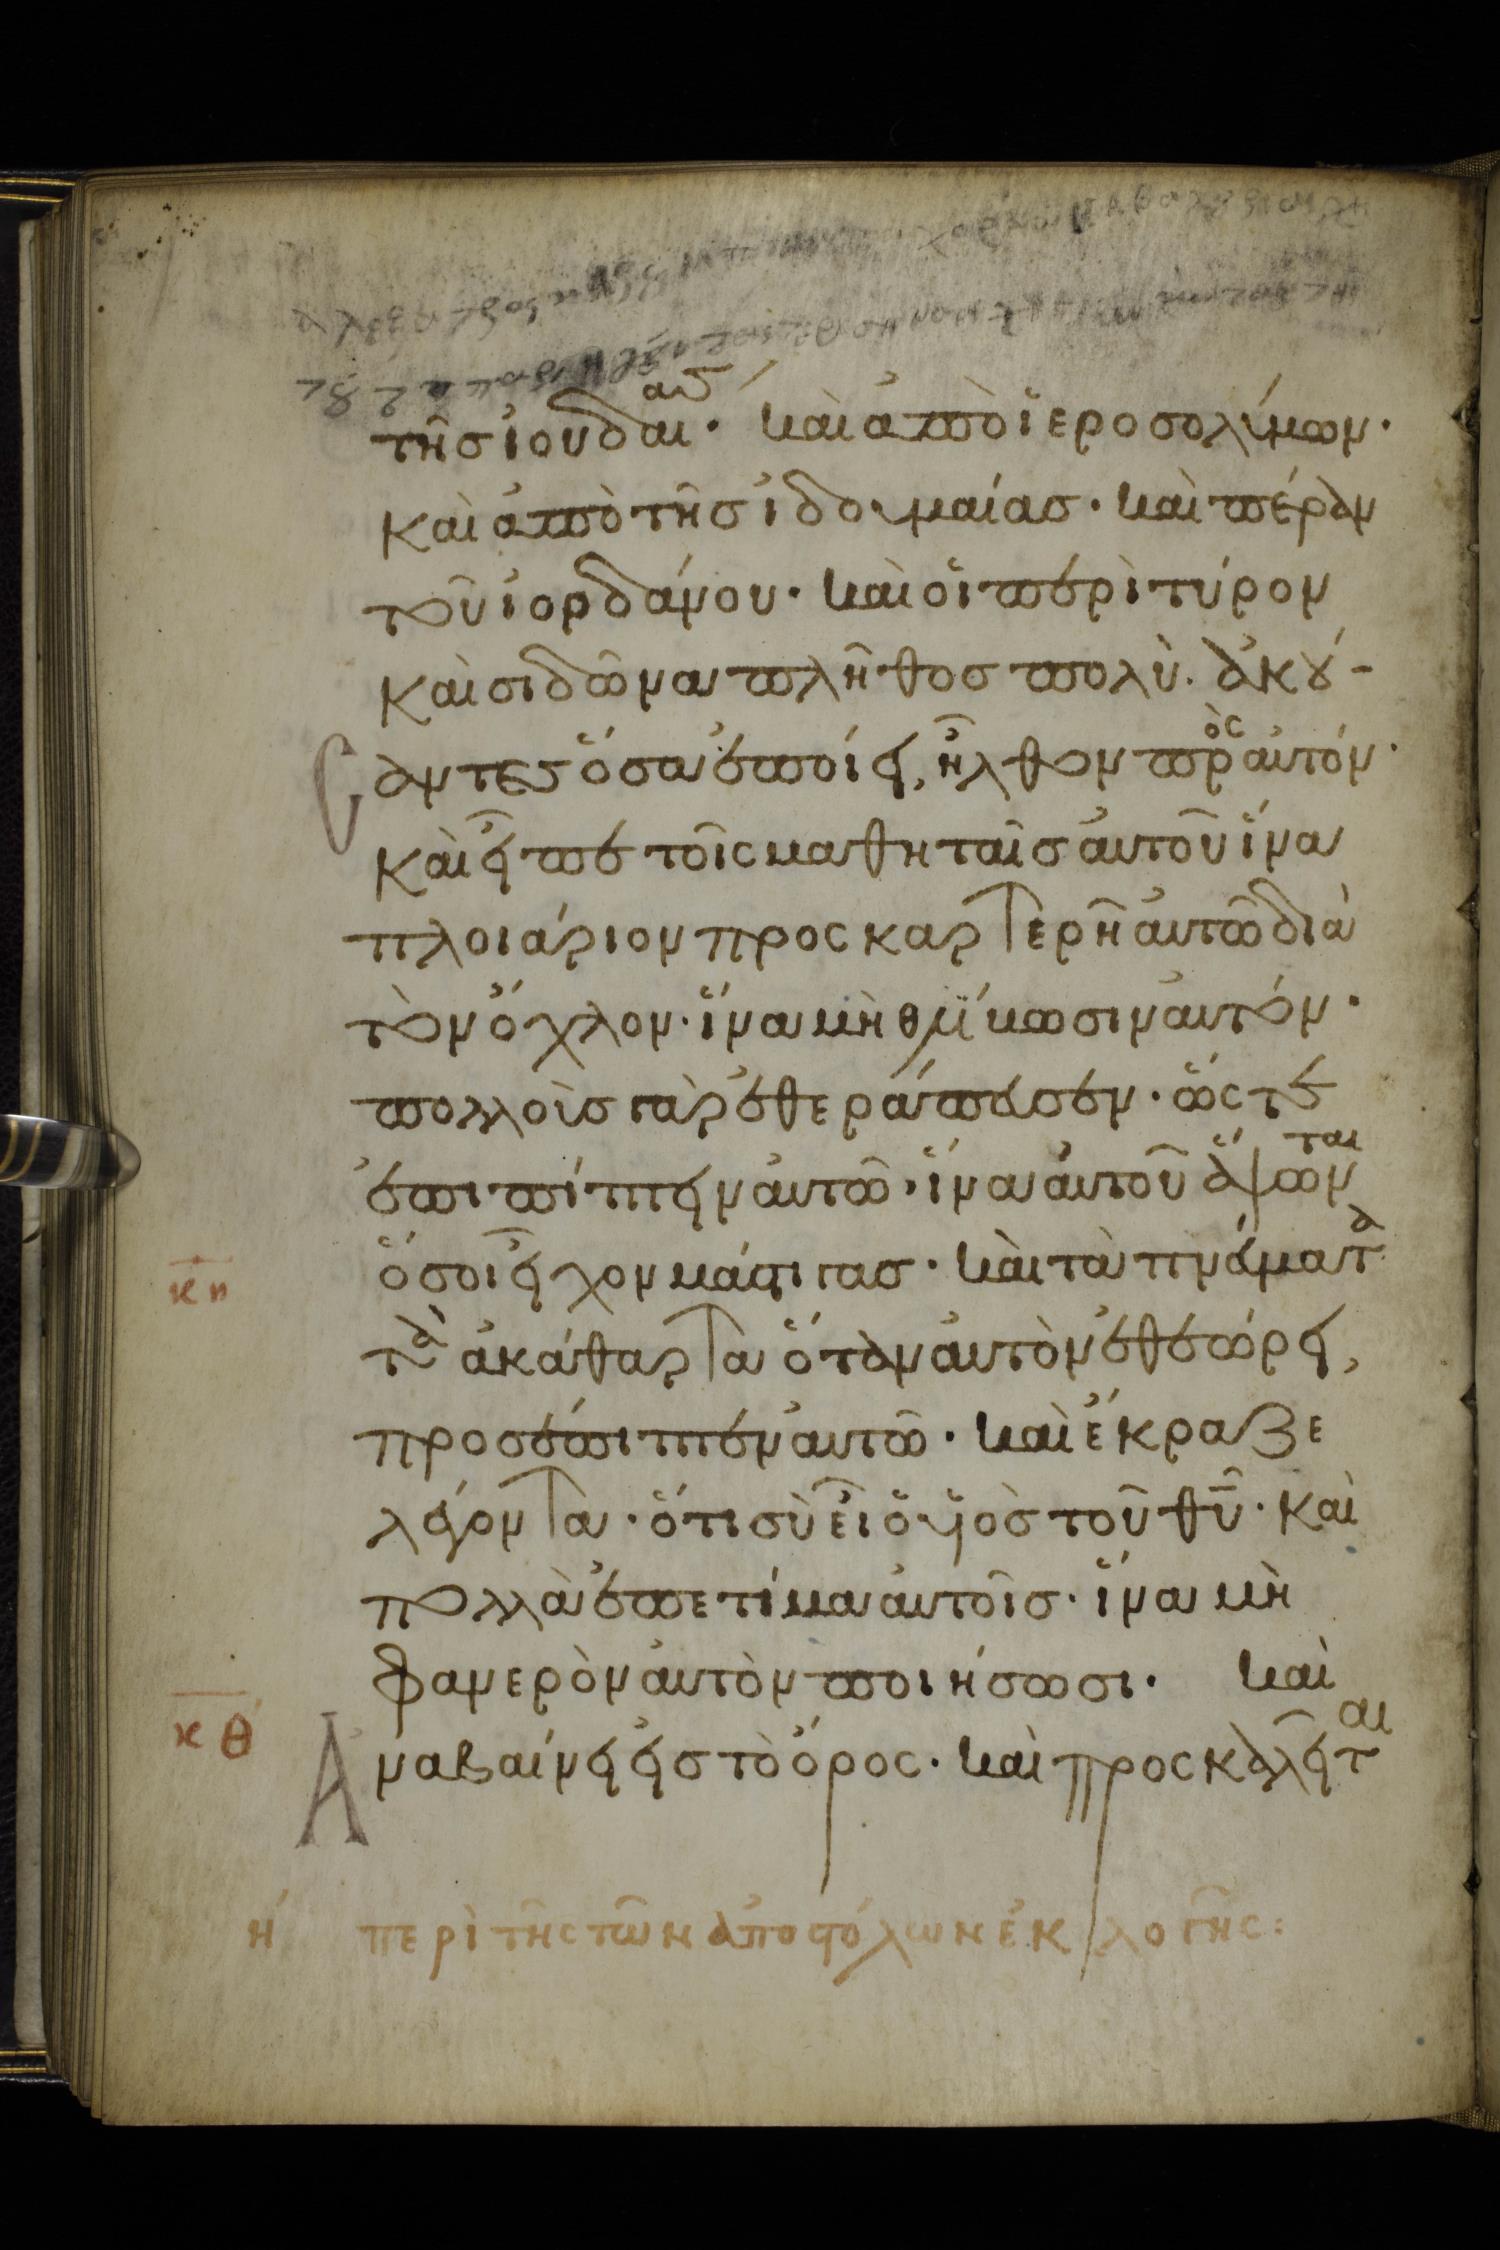 τῆσ ἰουδαίασ· καὶ ἀπὸ ἱεροσολύμων·
καὶ ἀπὸ τῆσ ἰδουμαίασ· καὶ πέραν
τοῦ ἰορδάνου· καὶ οἱ περὶ τύρον
καὶ σιδῶνα πλῆθοσ πολὺ· ἀκού-
σαντεσ ὅσα ἐποίει, ἦλθον πρὸς αὐτόν·
καὶ εἶπε τοῖς μαθηταῖσ αὐτοῦ ἵνα
πλοιάριον προσκαρτερῆ αὐτῶ διὰ
τὸν ὄχλον· ἵνα μὴ θλίβωσιν αὐτόν·
πολλοὺσ γὰρ ἐθεράπευσεν· ὥςτε
ἐπιπίπτειν αὐτῶ· ἵνα αὐτοῦ ἅψωνται
ὅσοι εἶχον μάστιγασ· καὶ τὰ πνεύματα
κη
τὰ ἀκάθαρτα ὅταν αὐτὸν ἐθεώρει,
προσέπιπτεν αὐτῶ· καὶ ἔκραζε
λέγοντα· ὅτι σὺ εἶ ὁ υἱὸσ τοῦ θῦ· καὶ
πολλὰ ἐπετίμα αὐτοῖσ· ἵνα μὴ
φανερὸν αὐτὸν ποιήσωσι· καὶ
κθ
Ἀναβαίνει εἰσ τὸ ὄρος· καὶ προσκαλεῖται
η περὶ τῆς τῶν ἀποστόλων ἐκλογῆς: